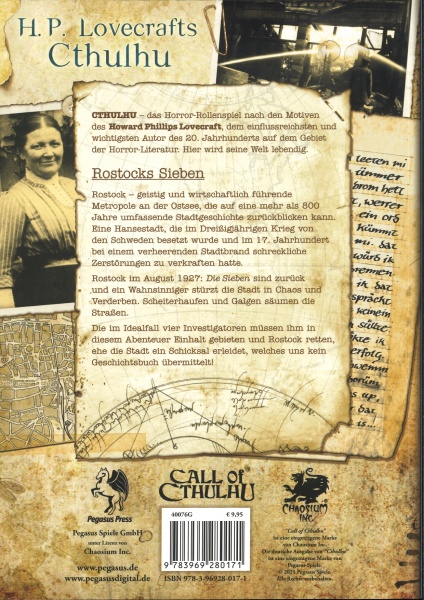 H. P. Lovecrafts
Cthulhu
CTHULHU – das Horror-Rollenspiel nach den Motiven
des Howard Phillips Lovecraft, dem einflussreichsten und
wichtigsten Autor des 20. Jahrhunderts auf dem Gebiet
der Horror-Literatur. Hier wird seine Welt lebendig.
Rostocks Sieben
Rostock – geistig und wirtschaftlich führende
Metropole an der Ostsee, die auf eine mehr als 800
Jahre umfassende Stadtgeschichte zurückblicken kann.
Eine Hansestadt, die im Dreißigjährigen Krieg von
den Schweden besetzt wurde und im 17. Jahrhundert
bei einem verheerenden Stadtbrand schreckliche
Zerstörungen zu verkraften hatte.
Rostock im August 1927: Die Sieben sind zurück
und ein Wahnsinniger stürzt die Stadt in Chaos und
Verderben. Scheiterhaufen und Galgen säumen die
Straßen.
Die im Idealfall vier Investigatoren müssen ihm in
diesem Abenteuer Einhalt gebieten und Rostock retten,
ehe die Stadt ein Schicksal erleidet, welches uns kein
Geschichtsbuch übermittelt!
Pegasus Press
Pegasus Spiele GmbH
unter Lizenz von
Chaosium Inc.
www.pegasus.de
www.pegasusdigital.de
CALL of
CTHULHU
40076G
€ 9,95
9 783969 280171
ISBN 978-3-96928-017-1
CHAOSIUM
INC.
"Call of Cthulhu"
ist eine eingetragene Marke
von Chaosium Inc.
Die deutsche Ausgabe von "Cthulhu"
ist eine eingetragene Marke von
Pegasus Spiele.
© 2021 Pegasus Spiele
Alle Rechte vorbehalten.